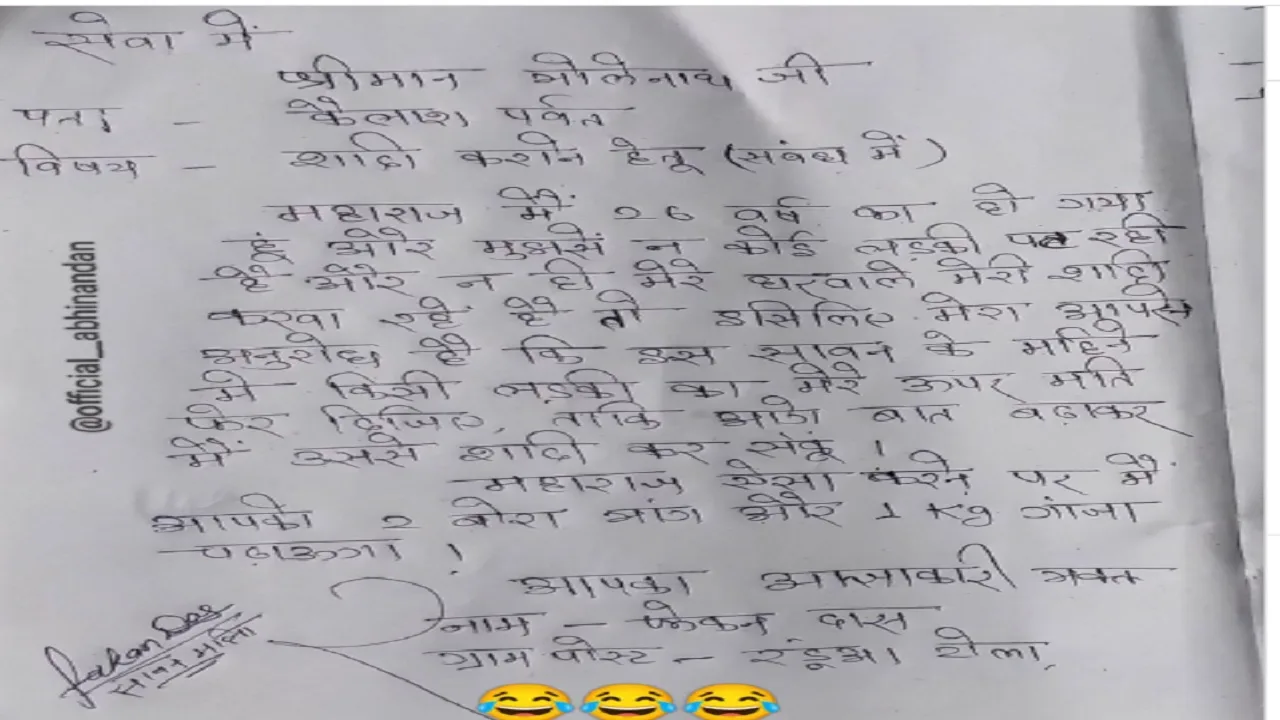 सेवा में
श्रीमान भोलेनाथ जी
पता - कैलाश पर्वत
विषय - शादि कराने हेतू (संबंध में)
महाराज मैं २६ वर्ष का हो गया
हूं और मुझसे न कोई लड़की पट रही
है और न ही मेरे घरवाले मेरी शादि
करवा रहें हैं तो इसिलिए मेरा आपसे
अनुरोध है कि इस सावन के महिने
में किसी लड़की का मेरे ऊपर मति
फेर दिजिए, ताकि आगे बात बढ़ाकर
मैं उससे शादि कर संकू ।
महाराज ऐसा करने पर मैं
आपको २ बोरा भांग और 1 Kg गांजा
चढ़ाऊंगा !
आपका आज्ञाकारी भक्त
नाम - फेकन दास
ग्राम पोस्ट - रंडूआ टोला
@official_abhinandan
😂😂😂